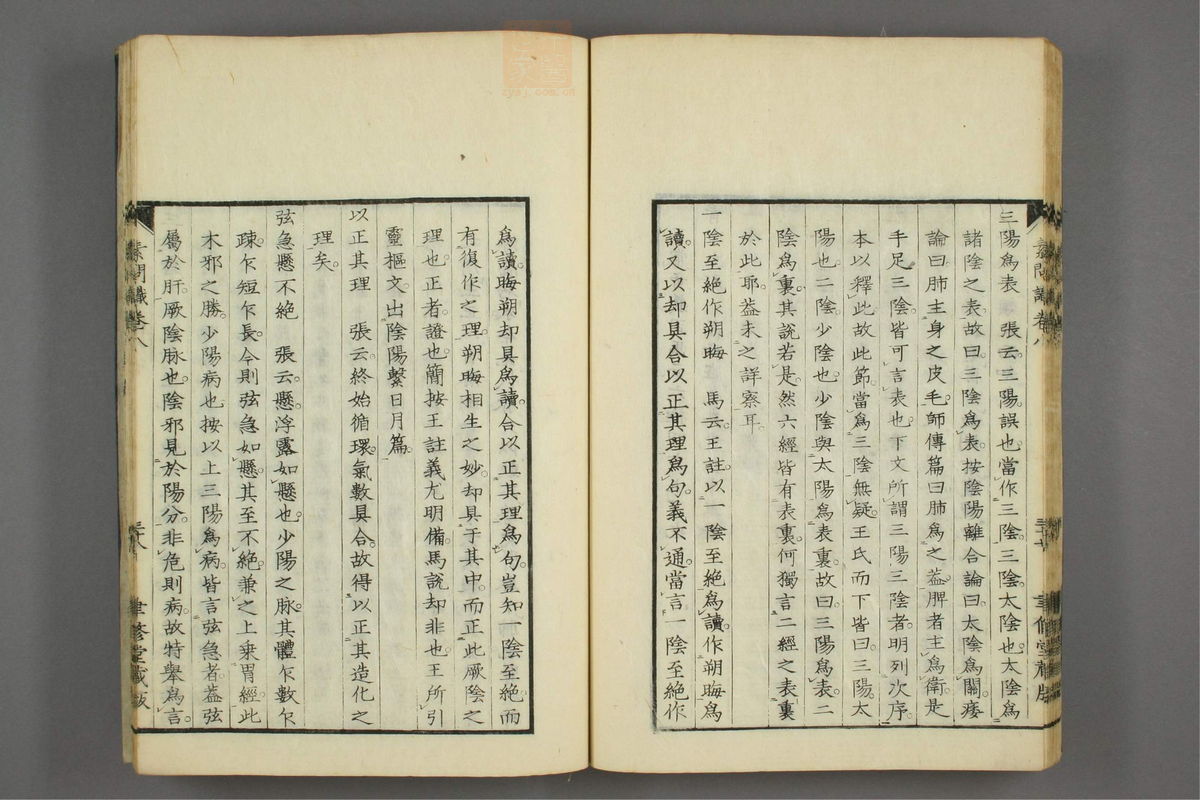 三陽爲表　張云三陽誤也當作三陰三陰太陰也太陰爲
諸陰之表故曰三陰爲表按陰陽離合論曰太陰爲關痿
論曰肺主身之皮毛師傳篇曰肺爲之蓋脾者主爲衛是
手足三陰皆可言表也下文所謂三陽三陰者明列次序
本以釋此故此節當爲三陰無疑王氏而下皆曰三陽太
陽也二陰少陰也少陰與太陽爲表裏故曰三陽爲表二
陰爲裏其說若是然六經皆有表裏何獨言二經之表裏
於此耶蓋未之詳察耳
一陰至絶作朔晦　馬云王註以一陰至絶爲讀作朔晦爲
讀又以却具合以正其理爲句義不通當言一陰至絶作
爲讀晦朔却具爲讀合以正其理爲句豈知一陰至絶而
有復作之理朔晦相生之妙却具于其中而正此厥陰之
理也正者證也簡按王註義尤明備馬說却非也王所引
靈樞文出陰陽繫日月篇
以正其理　張云終始循環氣數具合故得以正其造化之
理矣
弦急懸不絶　張云懸浮露如懸也少陽之脉其體乍數乍
疎乍短乍長今則弦急如懸其至不絶兼之上乗胃經此
木邪之勝少陽病也按以上三陽爲病皆言弦急者蓋弦
屬於肝厥陰脉也陰邪見於陽分非危則病故特舉爲言
素問識卷八
三十八
聿修堂藏板